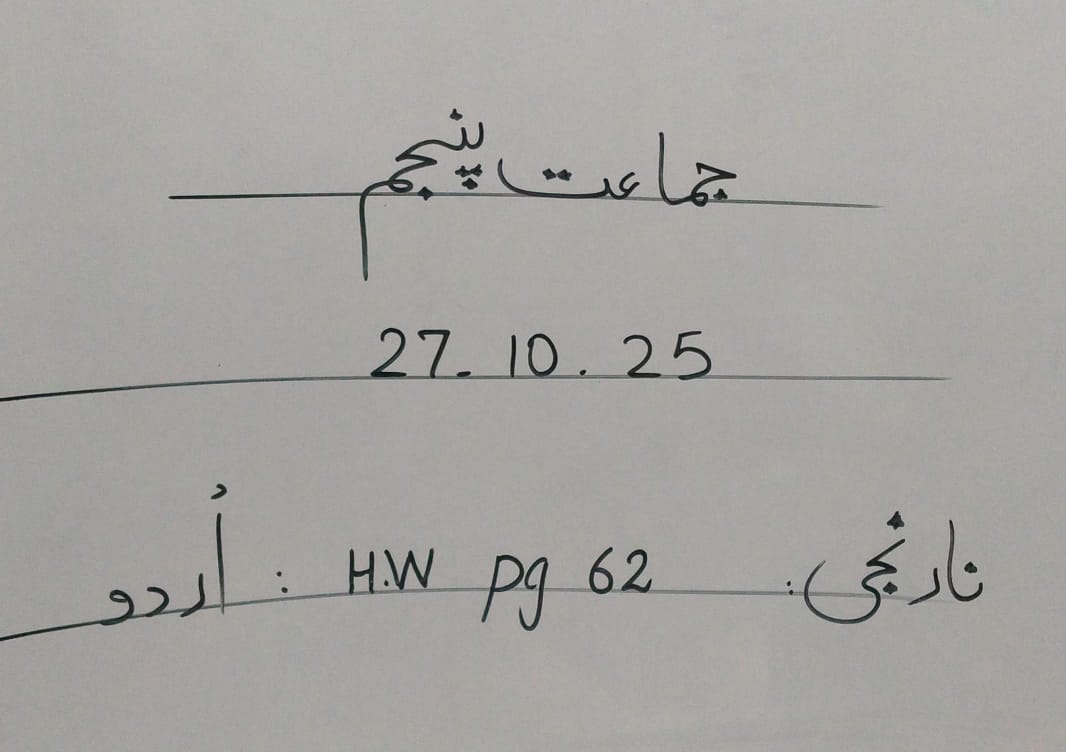 جماعت پنجم
27. 10. 25
نارنجی: H.W pg 62 : اُردو